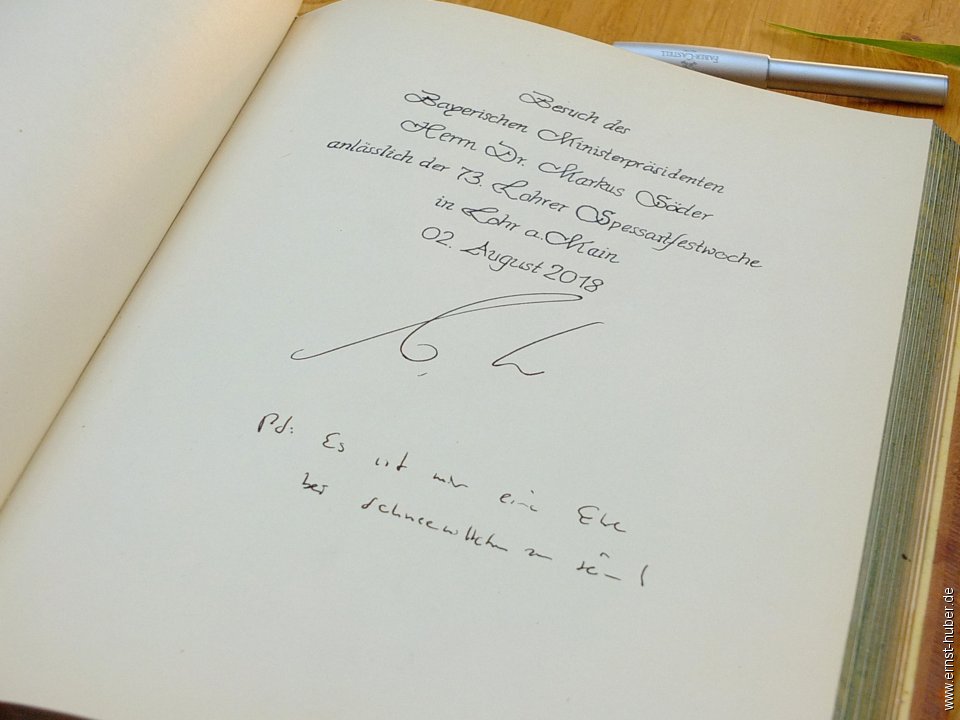 Besuch des
Bayerischen Ministerpräsidenten
Herrn Dr. Markus Söder
anlässlich der 73. Lohrer Spessartfestwoche
in Lohr a. Main
02. August 2018
Es ist mir eine Ehre
bei Schneewittchen zu sein!
FABER-CASTELL
www.ernst-huber.de